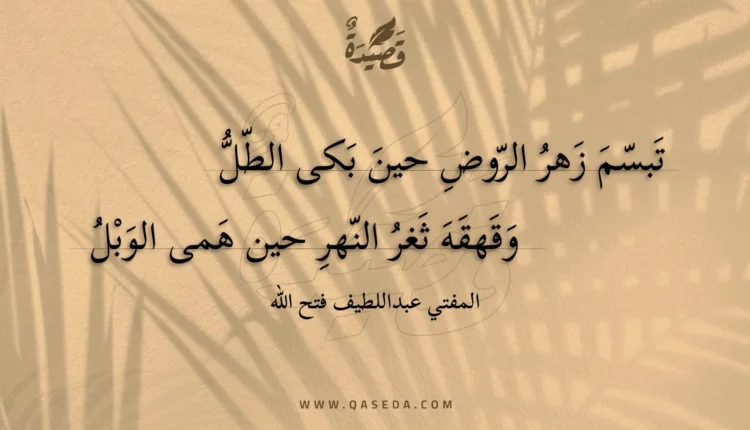 قَصِيْدَةٌ
تَبسّمَ زَهرُ الرّوضِ حينَ بَكى الطّلُّ
وَقَهقَهَ ثَغرُ النّهرِ حين هَمى الوَبْلُ
المفتي عبداللطيف فتح الله
WWW.QASEDA.COM